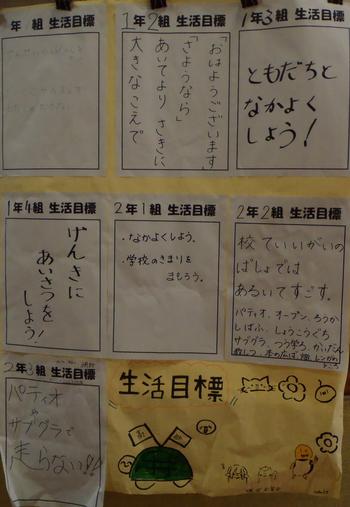 年 組 生活目標
1年2組 生活目標
「おはようございます」
「さようなら」
あいてより さきに
大きなこえで
1年3組 生活目標
ともだちと
なかよく
しよう!
1年4組 生活目標
げんきに
あいさつを
しよう!
2年1組 生活目標
・なかよくしよう。
・学校のきまりを
まもろう。
2年2組 生活目標
校ていいがいの
ばしょでは
あるいてすごす。
パティオ、オープン、ろうか
しばふ、しょうこうぐち
サブグラ、つう学ろ、かいだん
2年3組 生活目標
パティオ
や
サブグラで
走らない!!
生活目標